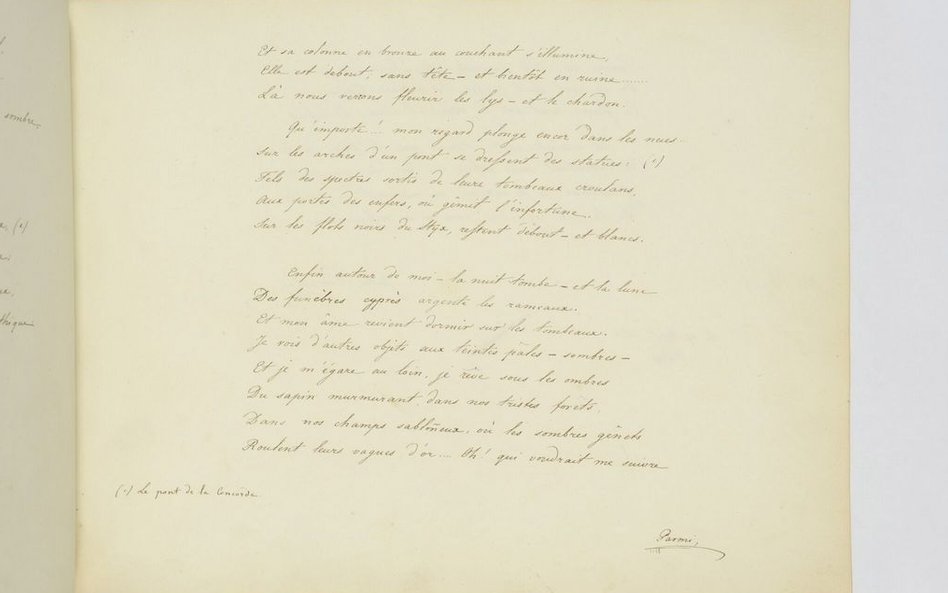 sombre,
(1)
Et sa colonne en bronze au couchant s'illumine,
Elle est debout; sans tête – et bientôt en ruine......
Là nous verrons fleurir les lys – et le chardon.
Qu'importe!.. mon regard plonge encor dans les nues
Sur les arches d'un pont se dressent des statues: (1)
Tels des spectres sortis de leurs tombeaux croulans,
Aux portes des enfers, où gémit l'infortune,
Sur les flots noirs du Styx, restent debout – et blancs.
Enfin autour de moi – la nuit tombe – et la lune
Des funèbres cyprès argente les rameaux.
Et mon âme revient dormir sur les tombeaux.
Je vois d'autres objets aux teintes pâles – sombres –
Et je m'égare au loin, je rêve sous les ombres
Du sapin murmurant, dans nos tristes forêts,
Dans nos champs sabloneux, où les sombres genêts
Roulent leurs vagues d'or.... Oh! qui voudrait me suivre
(1) Le pont de la Concorde
Parmi,